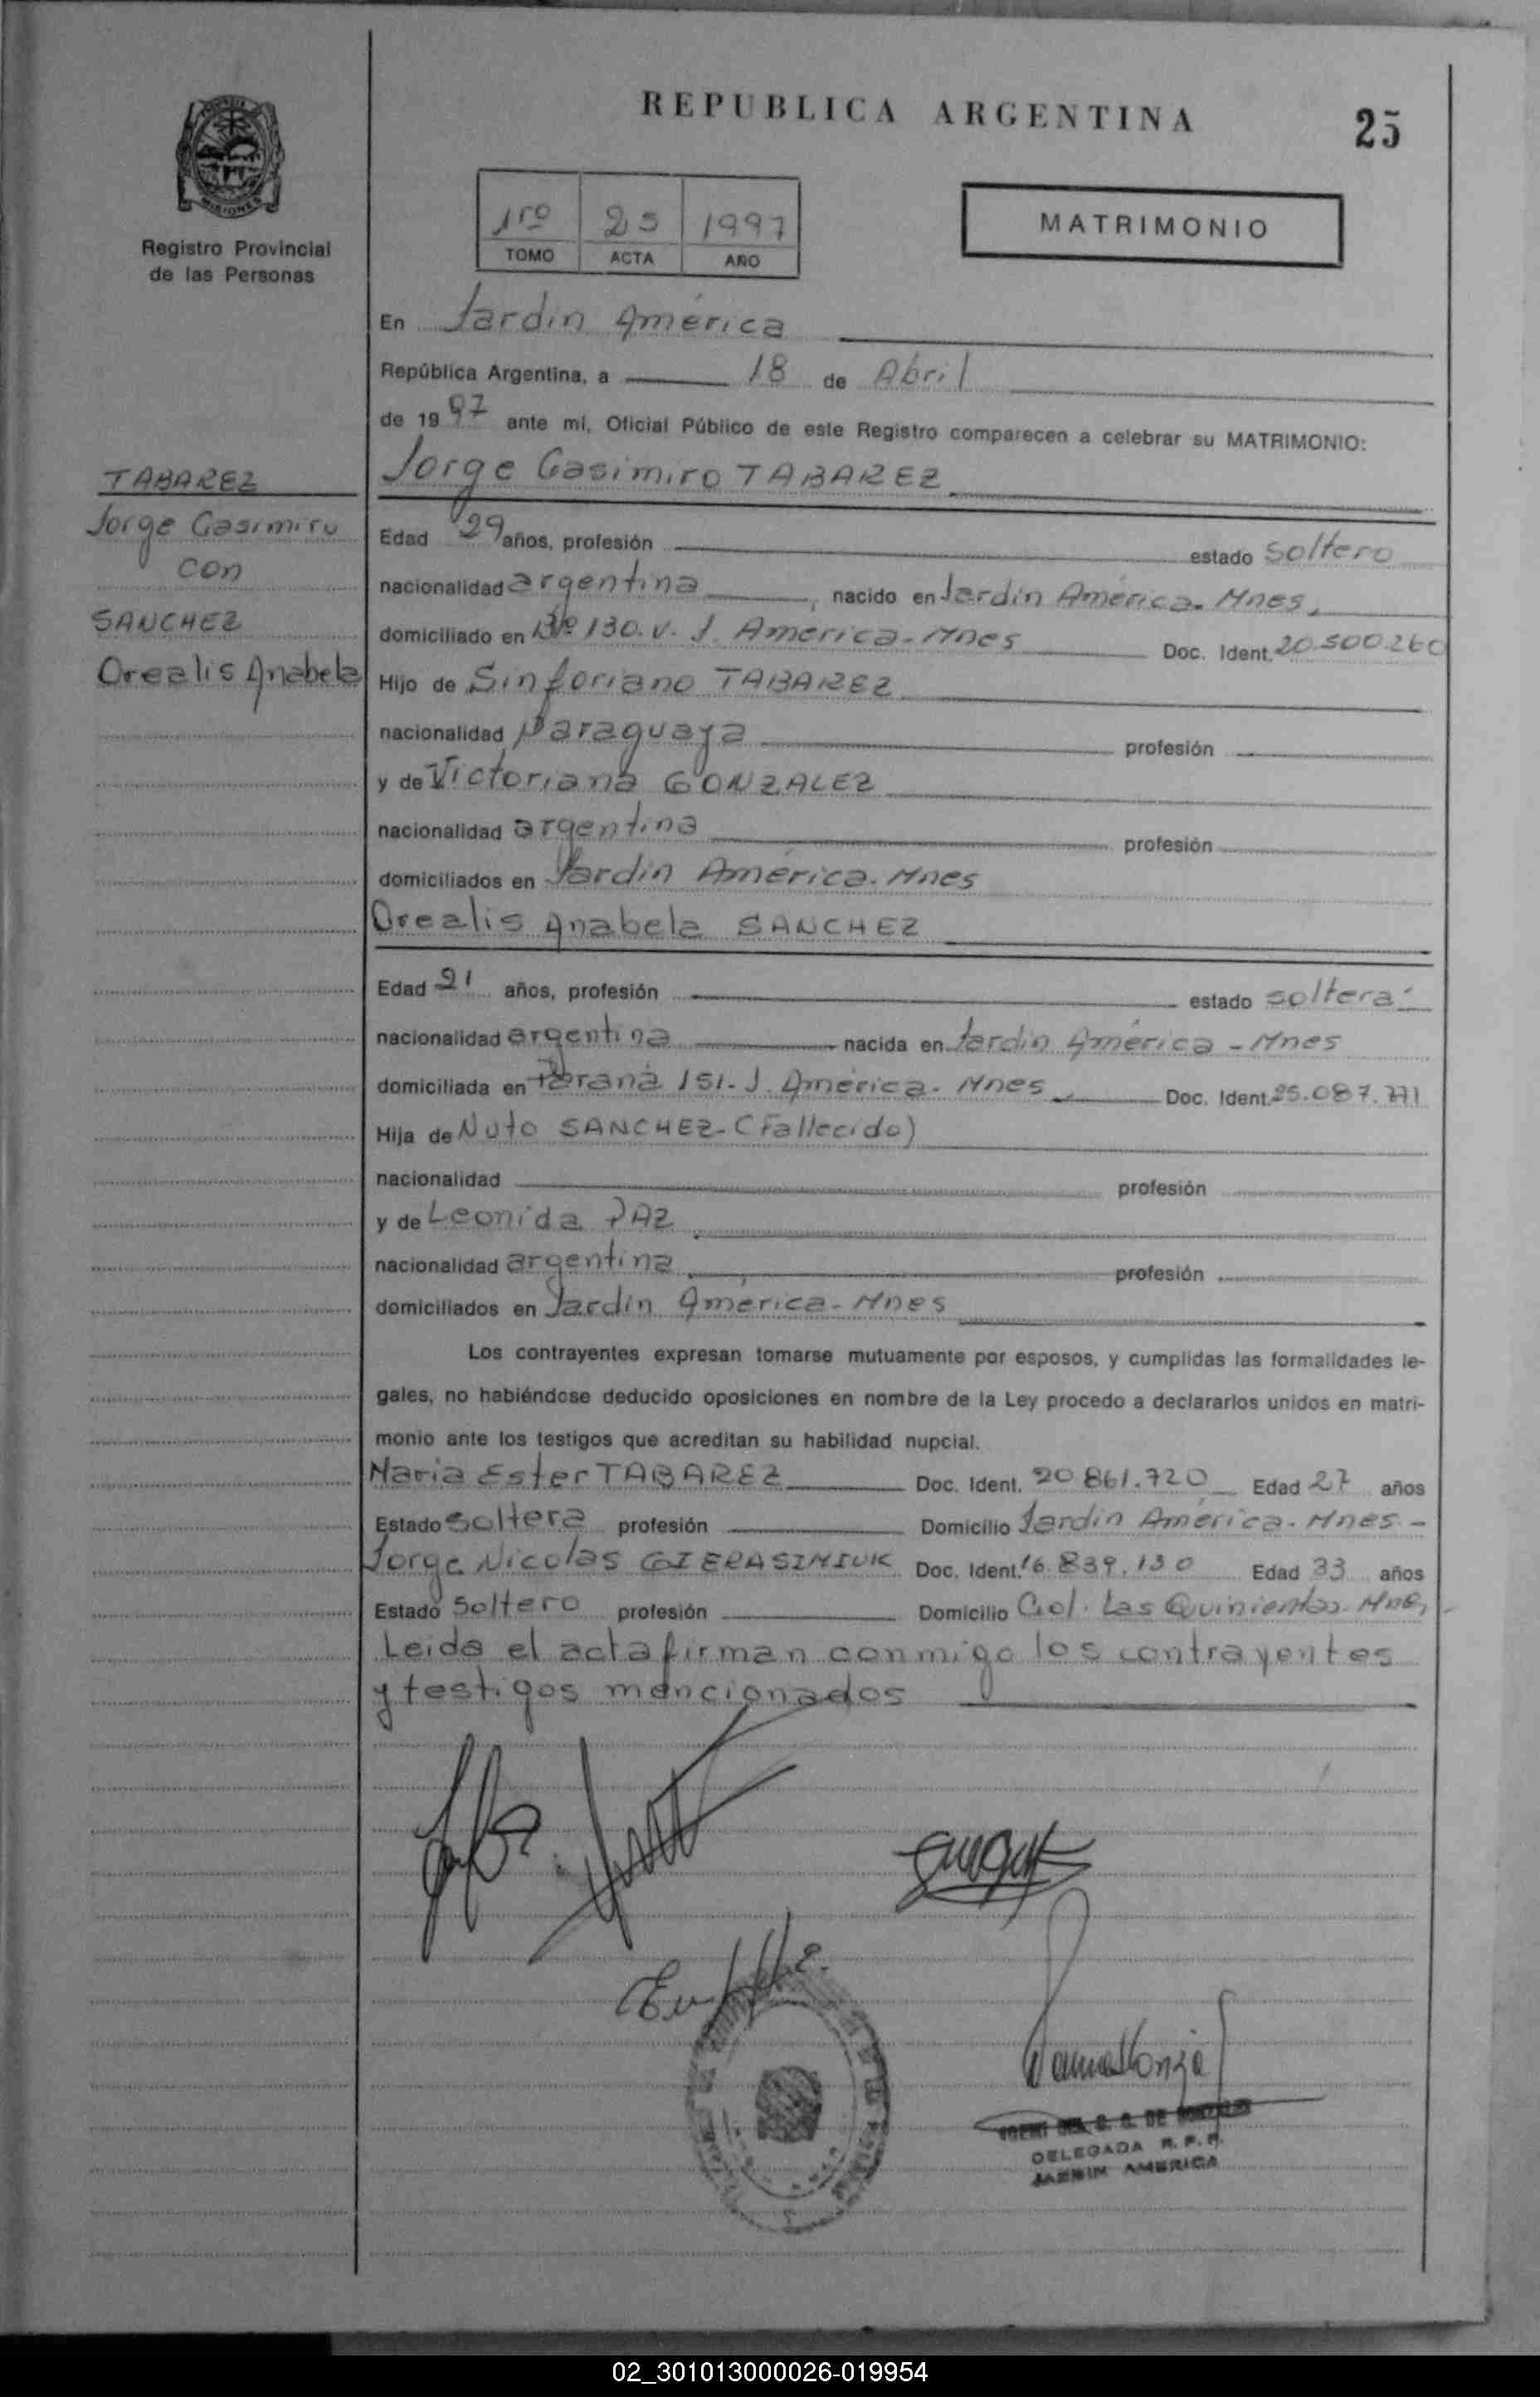 REPUBLICA ARGENTINA
25
MISIONES
Registro Provincial
de las Personas
1ro 25 1997
TOMO ACTA AÑO
MATRIMONIO
En Jardín América
República Argentina, a 18 de Abril
de 1997 ante mí, Oficial Público de este Registro comparecen a celebrar su MATRIMONIO:
TABAREZ
Jorge Casimiro
con
SANCHEZ
Orealis Anabela
Jorge Casimiro TABAREZ
Edad 29 años, profesión estado soltero
nacionalidad argentina, nacido en Jardín América. Mnes,
domiciliado en Bº 130.v. J. América-Mnes Doc. Ident. 20.500.260
Hijo de Sinforiano TABAREZ
nacionalidad paraguaya profesión
y de Victoriana GONZALEZ
nacionalidad argentina profesión
domiciliados en Jardín América. Mnes
Orealis Anabela SANCHEZ
Edad 21 años, profesión estado soltera
nacionalidad argentina nacida en Jardín América - Mnes
domiciliada en Paraná 151. J. América. Mnes Doc. Ident. 25.087.771
Hija de Nuto SANCHEZ-(Fallecido)
nacionalidad profesión
y de Leonida PAZ
nacionalidad argentina profesión
domiciliados en Jardín América-Mnes
Los contrayentes expresan tomarse mutuamente por esposos, y cumplidas las formalidades le-
gales, no habiéndose deducido oposiciones en nombre de la Ley procedo a declararlos unidos en matri-
monio ante los testigos que acreditan su habilidad nupcial.
Maria Ester TABAREZ Doc. Ident. 20 861.720 Edad 27 años
Estado soltera profesión Domicilio Jardín América. Mnes-
Jorge Nicolas GIERASIMIUK Doc. Ident. 16.839.130 Edad 33 años
Estado soltero profesión Domicilio Col. Las Quinientas. Mnes
Leida el acta firman conmigo los contrayentes
y testigos mencionados
DELEGADA R.P.P.
JARDIN AMERICA
02_301013000026-019954